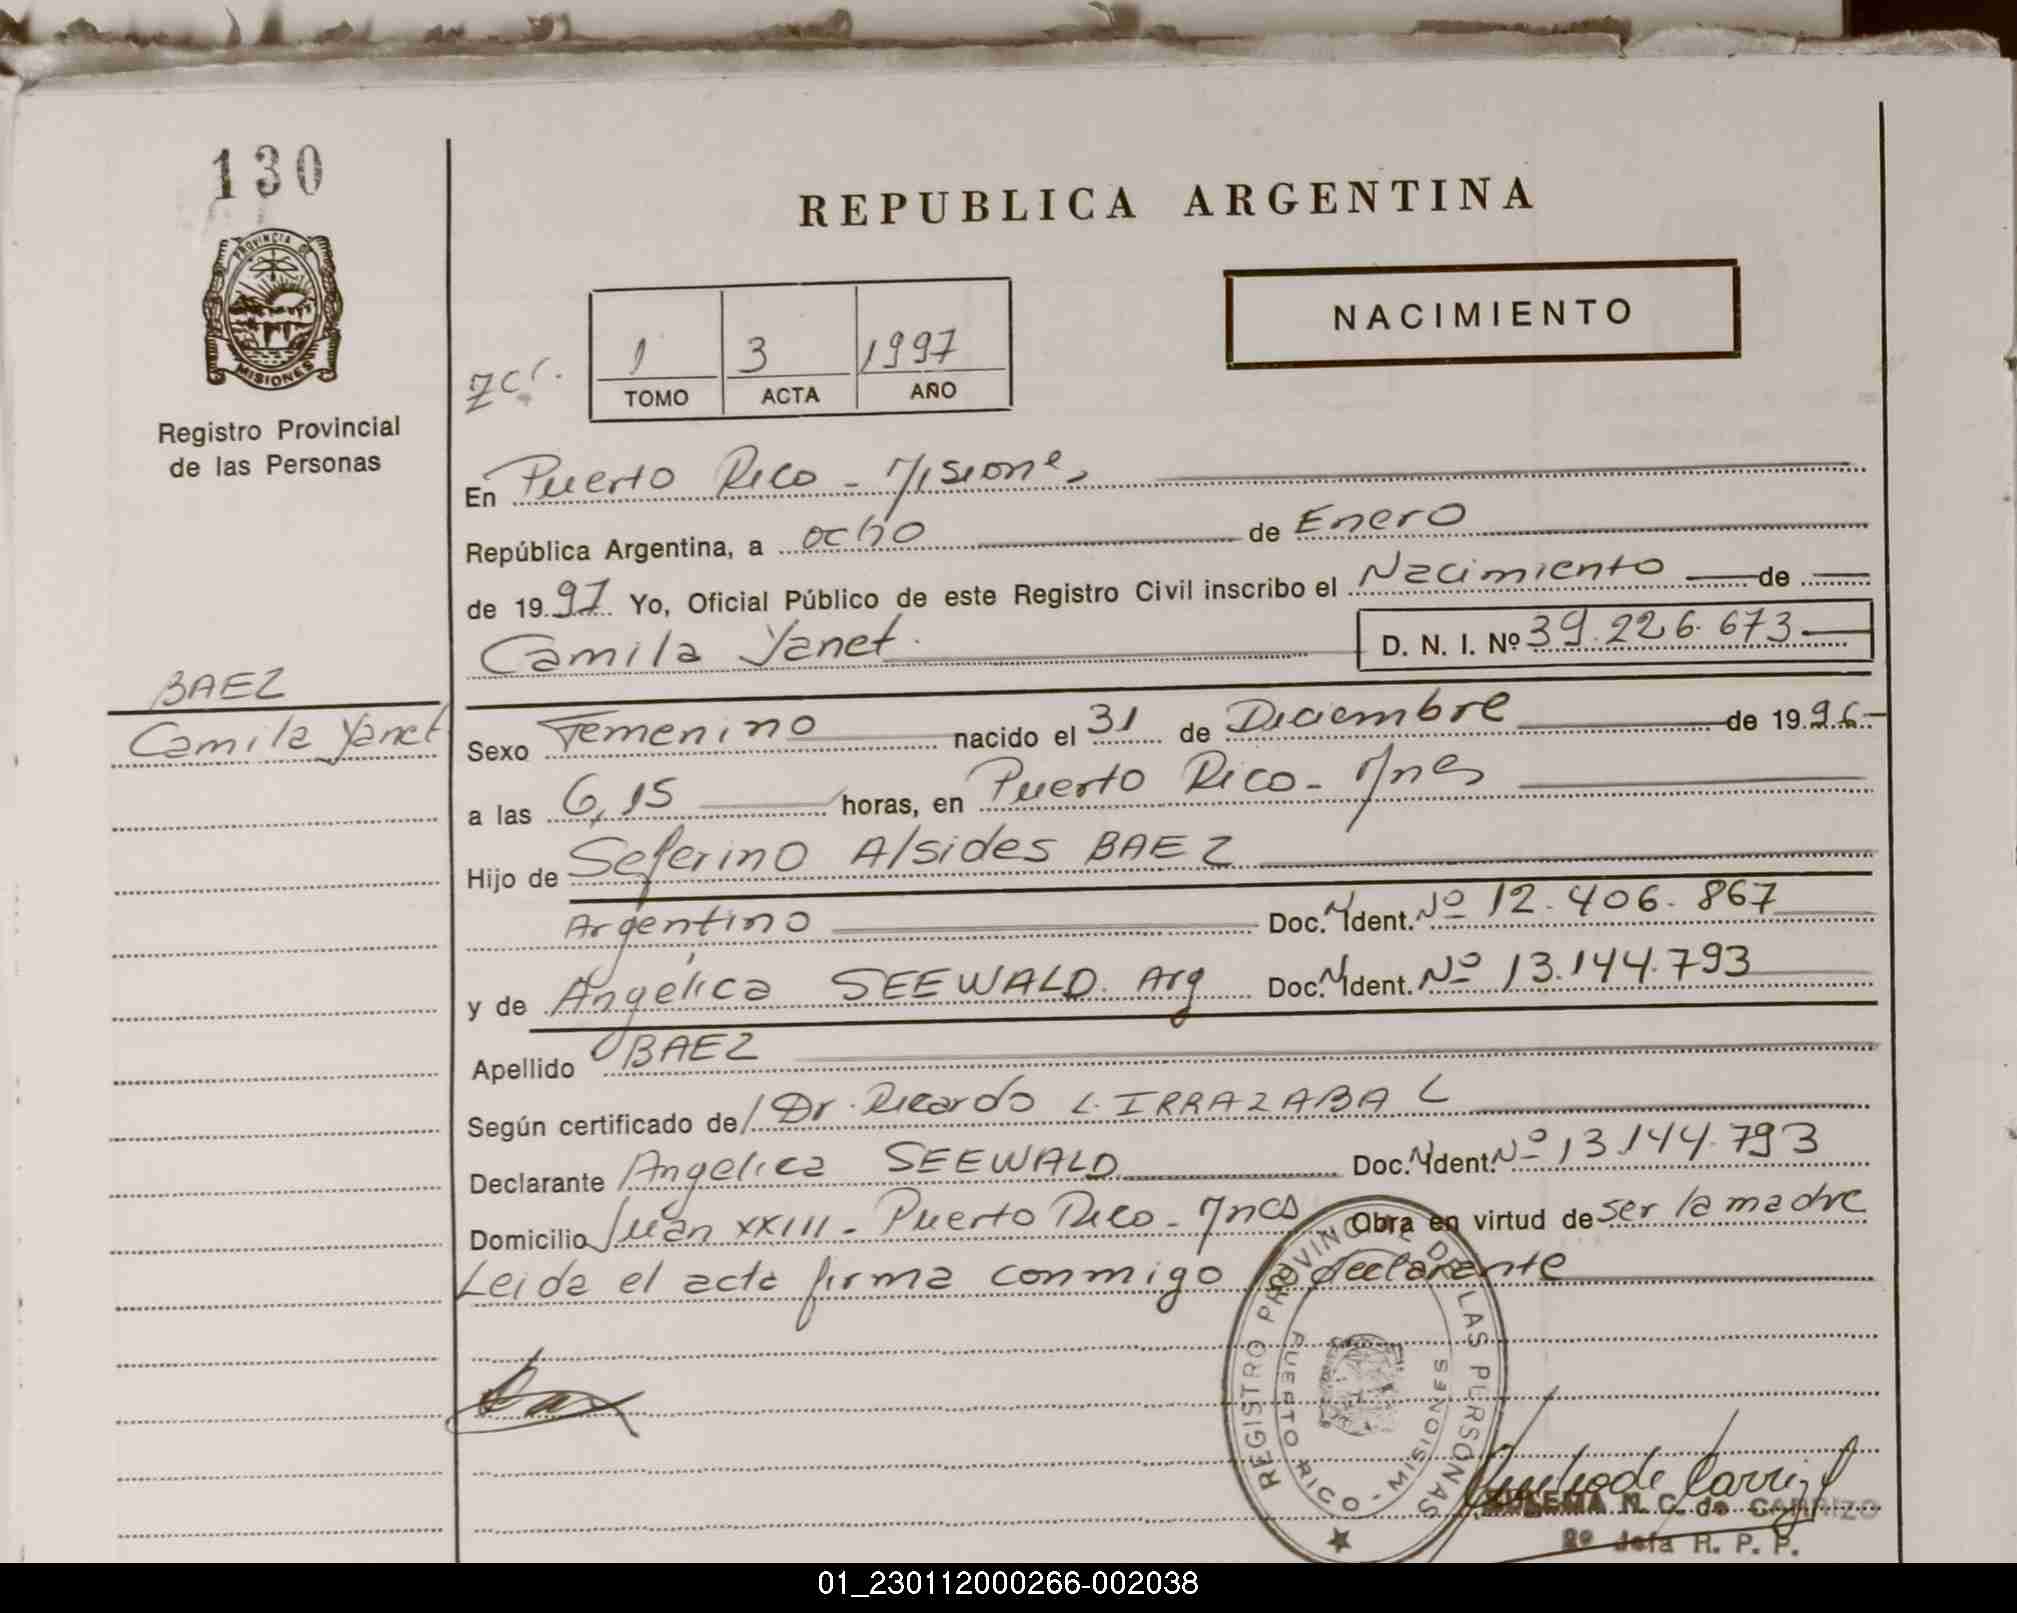 130
REPUBLICA ARGENTINA
PROVINCIA DE
MISIONES
Registro Provincial
de las Personas
NACIMIENTO
1 3 1997
TOMO ACTA AÑO
En Puerto Rico - Misiones
República Argentina, a ocho de Enero
de 1997 Yo, Oficial Público de este Registro Civil inscribo el Nacimiento de
Camila Yanet. D. N. I. Nº 39.226.673
BAEZ
Camila Yanet
Sexo Femenino nacido el 31 de Diciembre de 1996
a las 6,15 horas, en Puerto Rico - Mnes
Hijo de Seferino Alsides BAEZ
Argentino Doc. N Ident. Nº 12.406.867
y de Angélica SEEWALD. Arg Doc. N Ident. Nº 13.144.793
Apellido BAEZ
Según certificado de Dr. Ricardo L. IRRAZABAL
Declarante Angelica SEEWALD Doc. N Ident. Nº 13.144.793
Domicilio Juan XXIII - Puerto Rico - Mnes Obra en virtud de ser la madre
Leida el acta firma conmigo la declarante
REGISTRO PROVINCIAL DE LAS PERSONAS
PUERTO RICO - MISIONES
N. C. de CARRIZO
2º Jefa R. P. P.
01_230112000266-002038